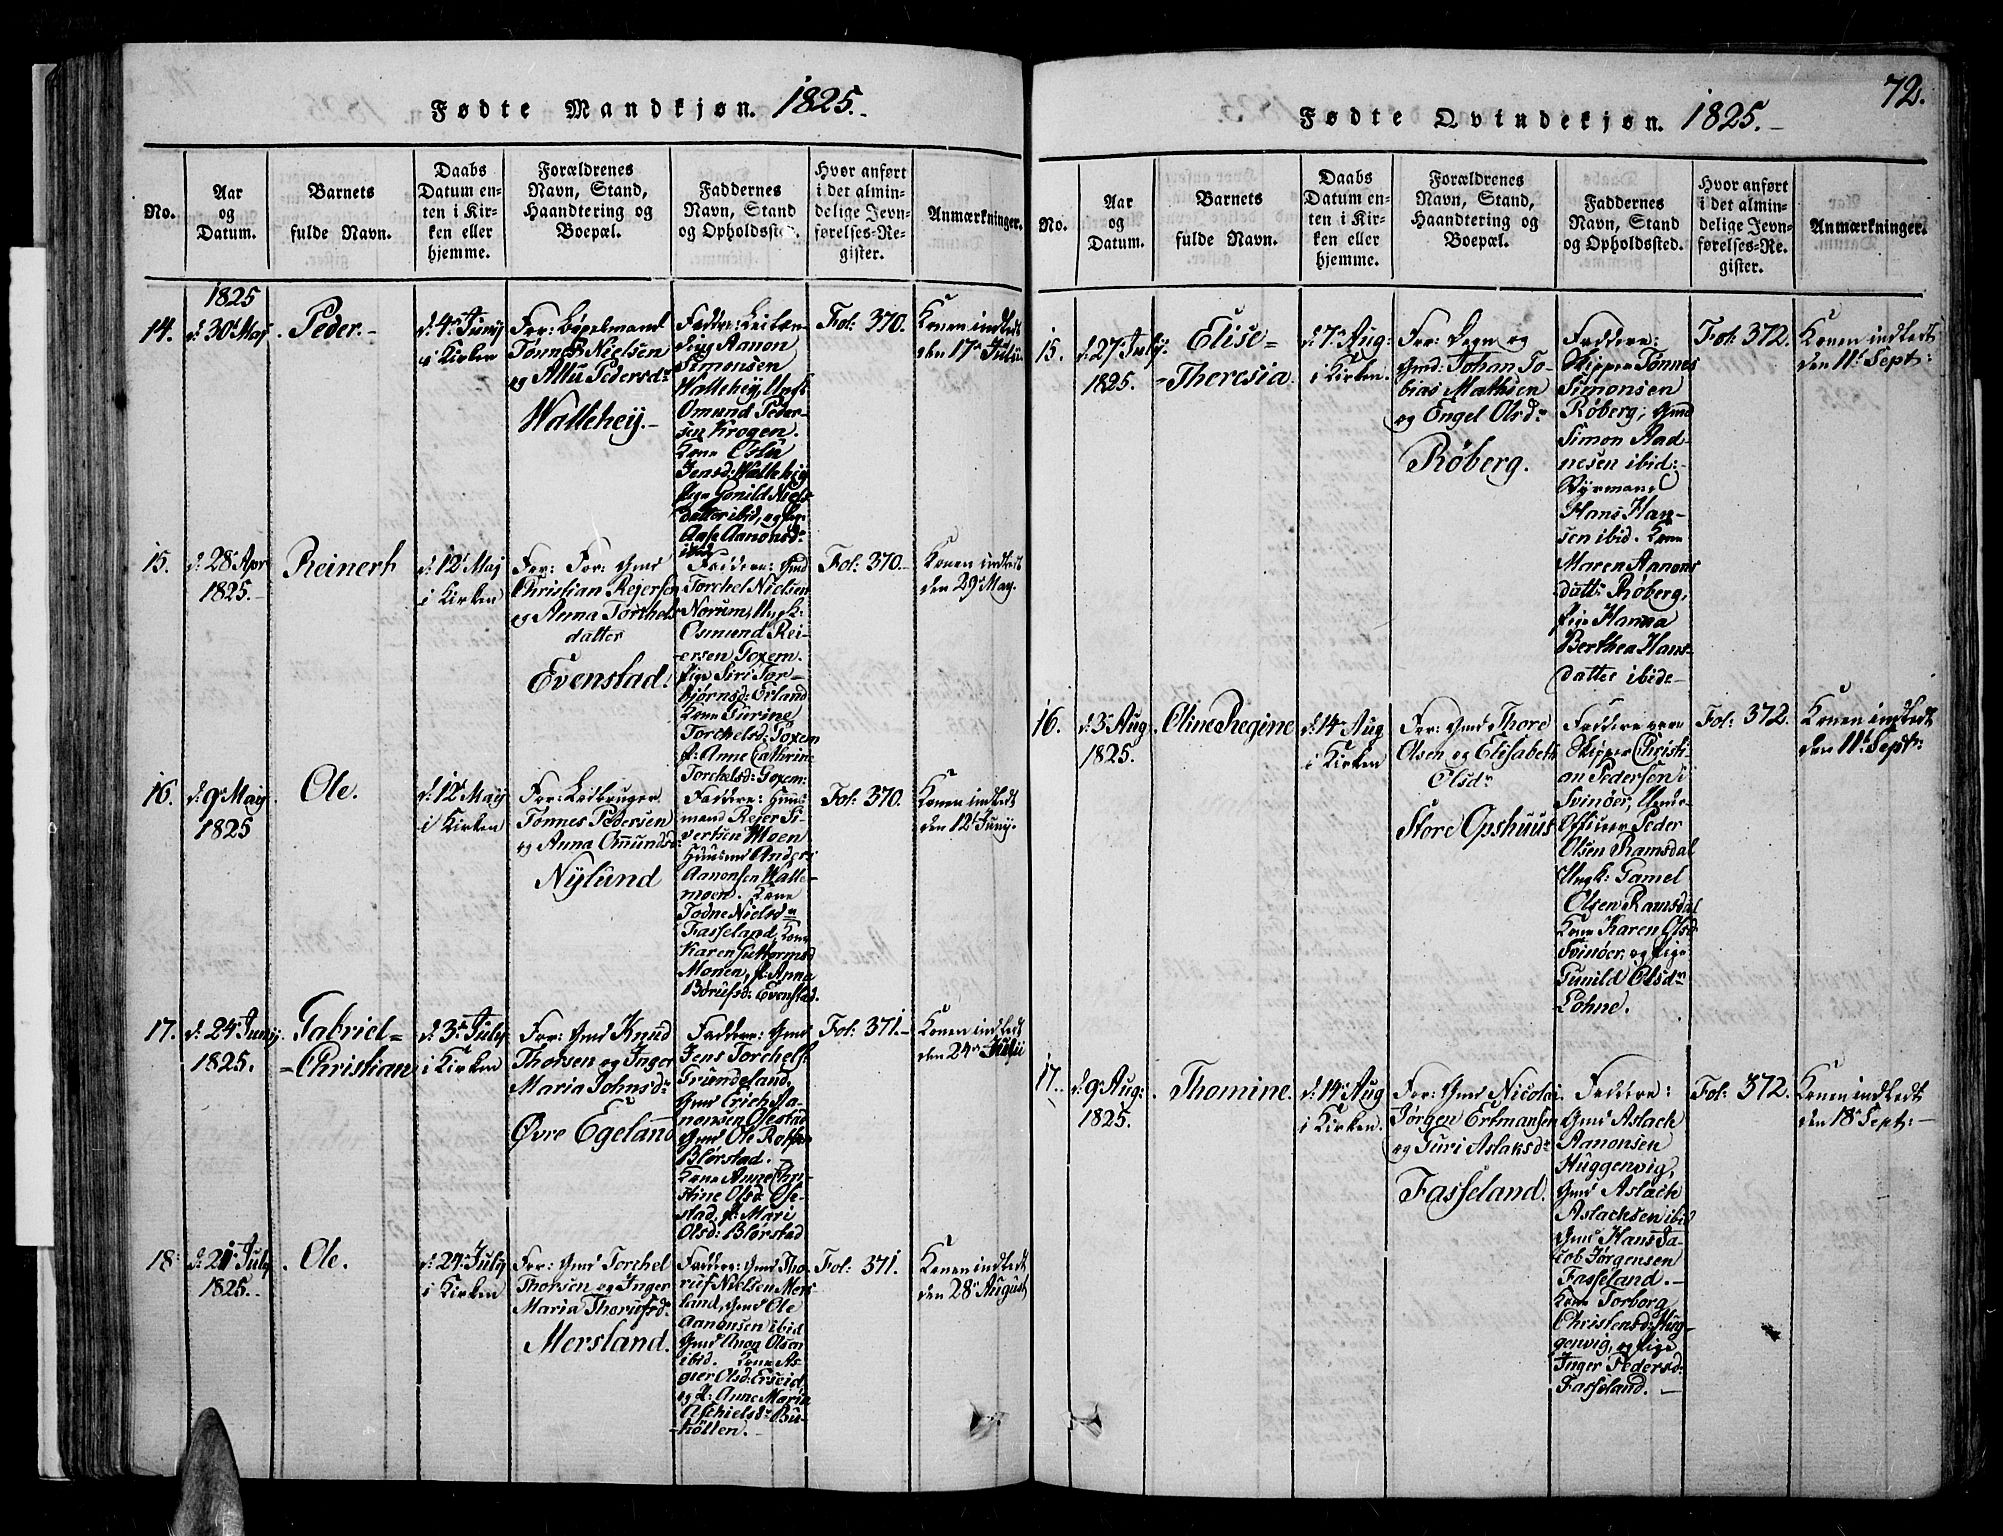 Fødte Mandkjøn. 1825.-
No.
Aar
og
Datum.
Barnets
fulde Navn.
Daabs
Datum en-
ten i Kir-
ken eller
hjemme.
Forældrenes
Navn, Stand,
Haandtering og
Boepæl.
Faddernes
Navn, Stand
og Opholdssted.
Hvor anført
i det almin-
delige Jevn-
førelses-Re-
gister.
Anmærkninger.
14.
1825
d: 30te Maj
Peder.-
d: 4de Juny
i Kirken
For: Bøpelmand
Tønnes Nielsen
og Allu Pedersdr
Wallehey.-
Faddere:
Aanon
Simonsen
Wallehey, Ungk
Omund Peder-
sen Krogen.
Kone Oslu
Jensd: Wallehey
Pige Gunild Niels
datter ibid, og
Aase Aanonsd:
ibid
Fol: 370.
Konen indledt
den 17de July
15.
d: 28de Apr
1825.-
Reinert
d: 12te Maj
i Kirken
For: Gmd
Christian Rejersen
og Anna Torchels
datter
Evenstad.
Faddere: Gmd
Torchel Nielsen
Norum, Ungk:
Osmund Rei-
ersen Goxem.
Pige Siri Tor-
bjørnsd: Eiland
Kone Gurine
Torchelsd: Goxem
P: Anne Cathrine
Torchelsd: Goxem:
Fol: 370.-
Konen indledt
den 29de May.
16.
d: 9de May
1825
Ole.
d: 12te May
i Kirken
For: Leibruger
Tønnes Pedersen
og Anna Omunds
Nylund
Faddere: Huus
mand Rejer Si-
vertsen Moen
Huusmd Anders
Aanonsen Walle-
moen. Kone
Todne Nielsdr
Fasseland, Kone
Karen Guttormsd
Monen, P: Anna
Børufsd: Evenstad.
Fol: 370.
Konen indledt
den 12te Juny.
17.
d: 24de Juny
1825.
Gabriel-
-Christian
d: 3de July
i Kirken
For: Gmd Knud
Thorsen og Inger
Maria Johnsdr
Øvre Egeland
Faddere: Gmd
Jens Torchels
Grundeland,
Gmd Erich Aa-
nonsen Osestad
Gmd Ole
Blørstad.-
Kone Anne Chri-
stine Olsd: Ose-
stad, P: Mari
Olsd: Blørstad
Fol: 371.-
Konen indledt
den 24de Julii
18.
d: 21de July
1825.-
Ole.
d: 24de July
i Kirken
For: Gmd Torchel
Thorsen og Inger
Maria Thorufsdr
Mersland.
Faddere: Gmd Tho-
ruf Nielsen Mers
land, Gmd Ole
Aanonsen ibid
Gmd Anon Olsen
ibid. Kone As-
gier Olsd: Erseid
og P: Anne Maria
Aschielsdr Bu-
kollen.-
Fol: 371.
Konen indledt
den 28de August
72.
Fødte Qvindekjøn. 1825.-
No.
Aar
og
Datum.
Barnets
fulde Navn.
Daabs
Datum en-
ten i Kir-
ken eller
hjemme.
Forældrenes
Navn, Stand,
Haandtering og
Boepæl.
Faddernes
Navn, Stand
og Opholdssted.
Hvor anført
i det almin-
delige Jevn-
førelses-Re-
gister.
Anmærkninger.
15.
d: 27de July
1825.
Elise-
-Theresia.
d: 7de Aug:
i Kirken.
For: Degn og
Gmd: Johan To-
bias Mathsen
og Engel Olsdr
Røberg.
Faddere:
Skipper Tønnes
Simonsen
Røberg, Gmd
Simon Aad-
nesen ibid:-
Styrmand
Hans Han-
sen ibid. Kone
Maren Annons
datt: Røberg,
Pige Hanna
Berthea Hans-
datter ibide-
Fol: 372.
Konen indledt
den 11te Sept:
16.
d: 3de Aug
1825.
Oline Regine
d: 14de Aug
i Kirken
For: Gmd Thore
Olsen og Elisabeth
Olsdr
Store Opshuus
Faddere vare
Skipper Christi
an Pedersen
Svinøer, Under
Officeer Peder
Olsen Ramsdal
Ungk: Gamel
Olsen Ramsdal
Kone Karen Olsd
Svinøer, og Pige
Gunild Olsdr
Lohne.
Fol: 372.
Konen indledt
den 11te Sept:
17.
d: 9de Aug:
1825.
Thomine.
d: 14de Aug
i Kirken.
For: Gmd Nicolai
Jørgen Ertmansen
og Guri Aslaksdr
Fasseland.
Faddere:
Gmd Aslach
Aanonsen
Huggenvig,
Gmd Aslach
Aslachsen ibid
Gmd Hans Ja-
cob Jørgensen
Fasseland.-
Kone Torborg
Christensd: Hug-
genvig, og Pige
Inger Pedersd:
Fasseland.-
Fol: 372.
Konen indledt
den 18de Sept:-